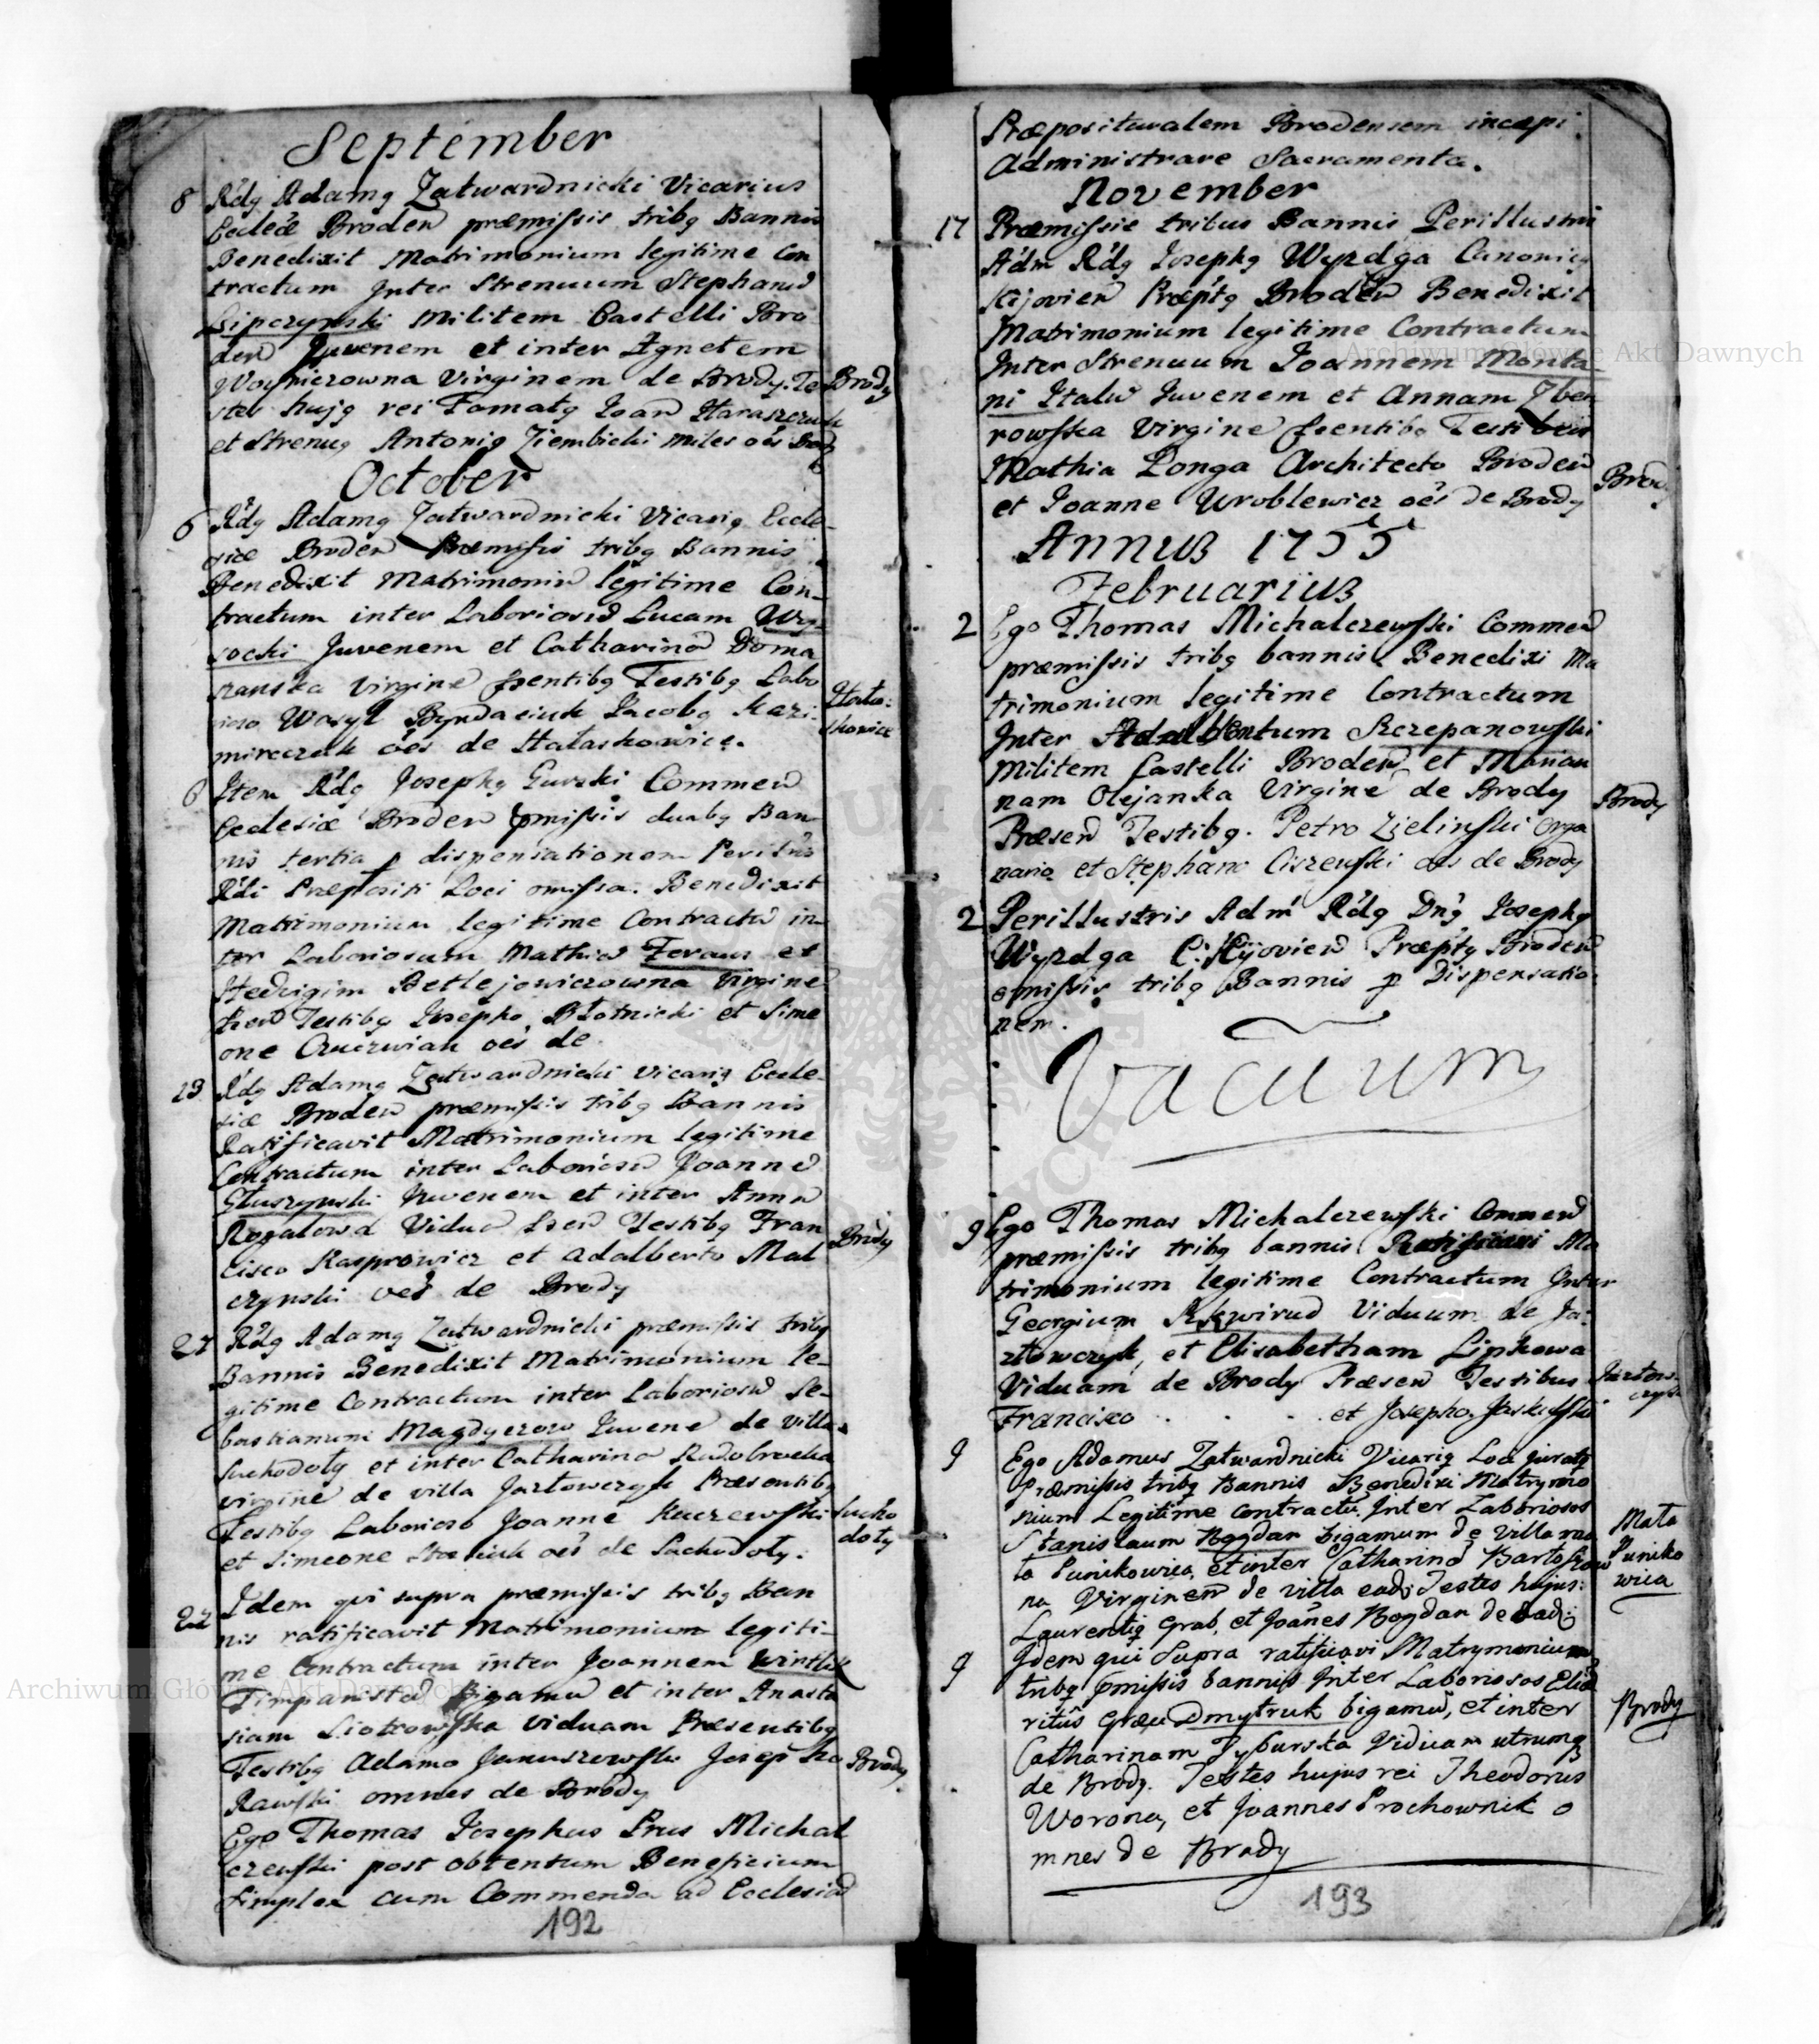 September
8 Rdg Adamg Zatwardnicki Vicarius
Eccleæ Broden præmissis tribg Bannis
Benedixit Matrimonium legitime Con
tractum Inter Strenuum Stephanū
Lipczynski Militem Castelli Bro
den Juvenem et inter Agnetem
Woynierowna Virginem de Brody. Te
Brody
stes hujg rei Famatg Joan Haraszczuk
et Strenug Antonig Ziembicki miles oēs Brody
October
6 Rdg Adamg Zatwardnicki Vicarig Eccle-
siæ Broden Præmissis tribg Bannis
Benedixit Matrimoniū legitime Con-
tractum inter Laboriosū Lucam Wy-
socki Juvenem et Catharinā Doma
ranska Virginē psentibg Testibg Labo
rioso Wasyl Bondaciuk Jacobg Kazi-
Hala-
skowice
mirczak oēs de Halaskowice.
6 Item Rdg Josephg Gurski Commen
Ecclesiæ Broden pmissis duabg Ban
nis tertia p dispensationem Perillris
Rdi Præpositi Loci omissa. Benedixit
Matrimonium legitime Contractū in-
ter Laboriosum Mathiā et
Hedvigim Betlejowiczowna Virginē
psen Testibg Josepho Błotnicki et Sime
one oēs de
13 Rdg Adamg Zatwardnicki Vicarig Eccle-
siæ Broden præmissis tribg Bannis
Ratificavit Matrimonium legitime
Contractum inter Laboriosū Joannē
Głuszynski Juvenem et inter Annā
Rogalowa Viduā psen Testibg Fran
Brody
cisco Kasprowicz et Adalberto Mal
czynski oēs de Brody
27 Rdg Adamg Zatwardnicki præmissis tribg
Bannis Benedixit Matrimonium le-
gitime Contractum inter Laboriosū Se-
bastianum Magdyerow Juvenē de villa
Suchodoły et inter Catharinā
virginē de villa Jazłowczyk Præsentibg
Testibg Laborioso Joanne Kuczewski
Sucho
doły
et Simeone oēs de Suchodoły.
22 Idem qui supra præmissis tribg Ban
nis ratificavit Matrimonium legiti-
me Contractum inter Joannem
Timpanistā Bigamū et inter Anasta
siam Piotrowska viduam Præsentibg
Testibg Adamo Januszewski Josepho
Brody
Rawski omnes de Brody
Ego Thomas Josephus Prus Michal
czewski post obtentum Beneficium
simplex cum Commenda ad Ecclesiā
192
Præposituralem Brodensem incæpi
Administrare Sacramenta.
November
17 Præmissis tribus Bannis Perillustri
Adm Rdg Josephg Wyzdga Canonicg
Kijovien Præptg Broden Benedixit
Matrimonium legitime Contractum
Inter Strenuum Joannem Monta-
ni Italū Juvenem et Annam Zbea
rowska Virginē psentibg Testibus
Mathia Longa Architecto Broden
Brody
et Joanne Wroblewicz oēs de Brody
Annus 1755
Februarius
2 Ego Thomas Michalczewski Commen
præmissis tribg bannis Benedixi Ma
trimonium legitime Contractum
Inter Adalbertum Szczepanowski
Militem Castelli Broden et Marian
nam Olejanka Virginē de Brody
Brody
Præsen Testibg. Petro Zielinski Orga
nario et Stephano Ciszewski oēs de Brody
2 Perillustris Adm Rdg Dng Josephg
Wyzdga C: Kijovien Præptg Broden
omissis tribg Bannis p Dispensatio-
nem.
Vacuum
9 Ego Thomas Michalczewski Commen
præmissis tribg bannis Ratificavi Ma
trimonium legitime Contractum Inter
Georgium Skwirud Viduum de Ja-
złowczyk, et Elisabetham Lipkowa
Viduam de Brody Præsen Testibus
Jazłow-
czyk
Francisco . . . . et Josepho Jaskulski
9 Ego Adamus Zatwardnicki Vicarig Loci Juratg
Præmissis tribg Bannis Benedixi Matrymo
nium Legitime contractū Inter Laboriosos
Stanislaum Bogdan bigamum de Villa ma
Mała
Puniko
wica
ła Punikowica, et inter Catharinā Bartoszow
na Virginem de villa eadē Testes hujus:
Laurentig Grab, et Joanes Bogdan de eadē
9 Idem qui Supra ratificavi Matrymonium
tribg pmissis bannis Inter Laboriosos Eliā
ritûs Græci Dmytruk bigamū, et inter
Brody
Catharinam Tyburska Viduam utrumq
de Brody. Testes hujus rei Theodorus
Worona, et Joannes Prochownik o
mnes de Brody
193
Archiwum Główne Akt Dawnych
Archiwum Główne Akt Dawnych